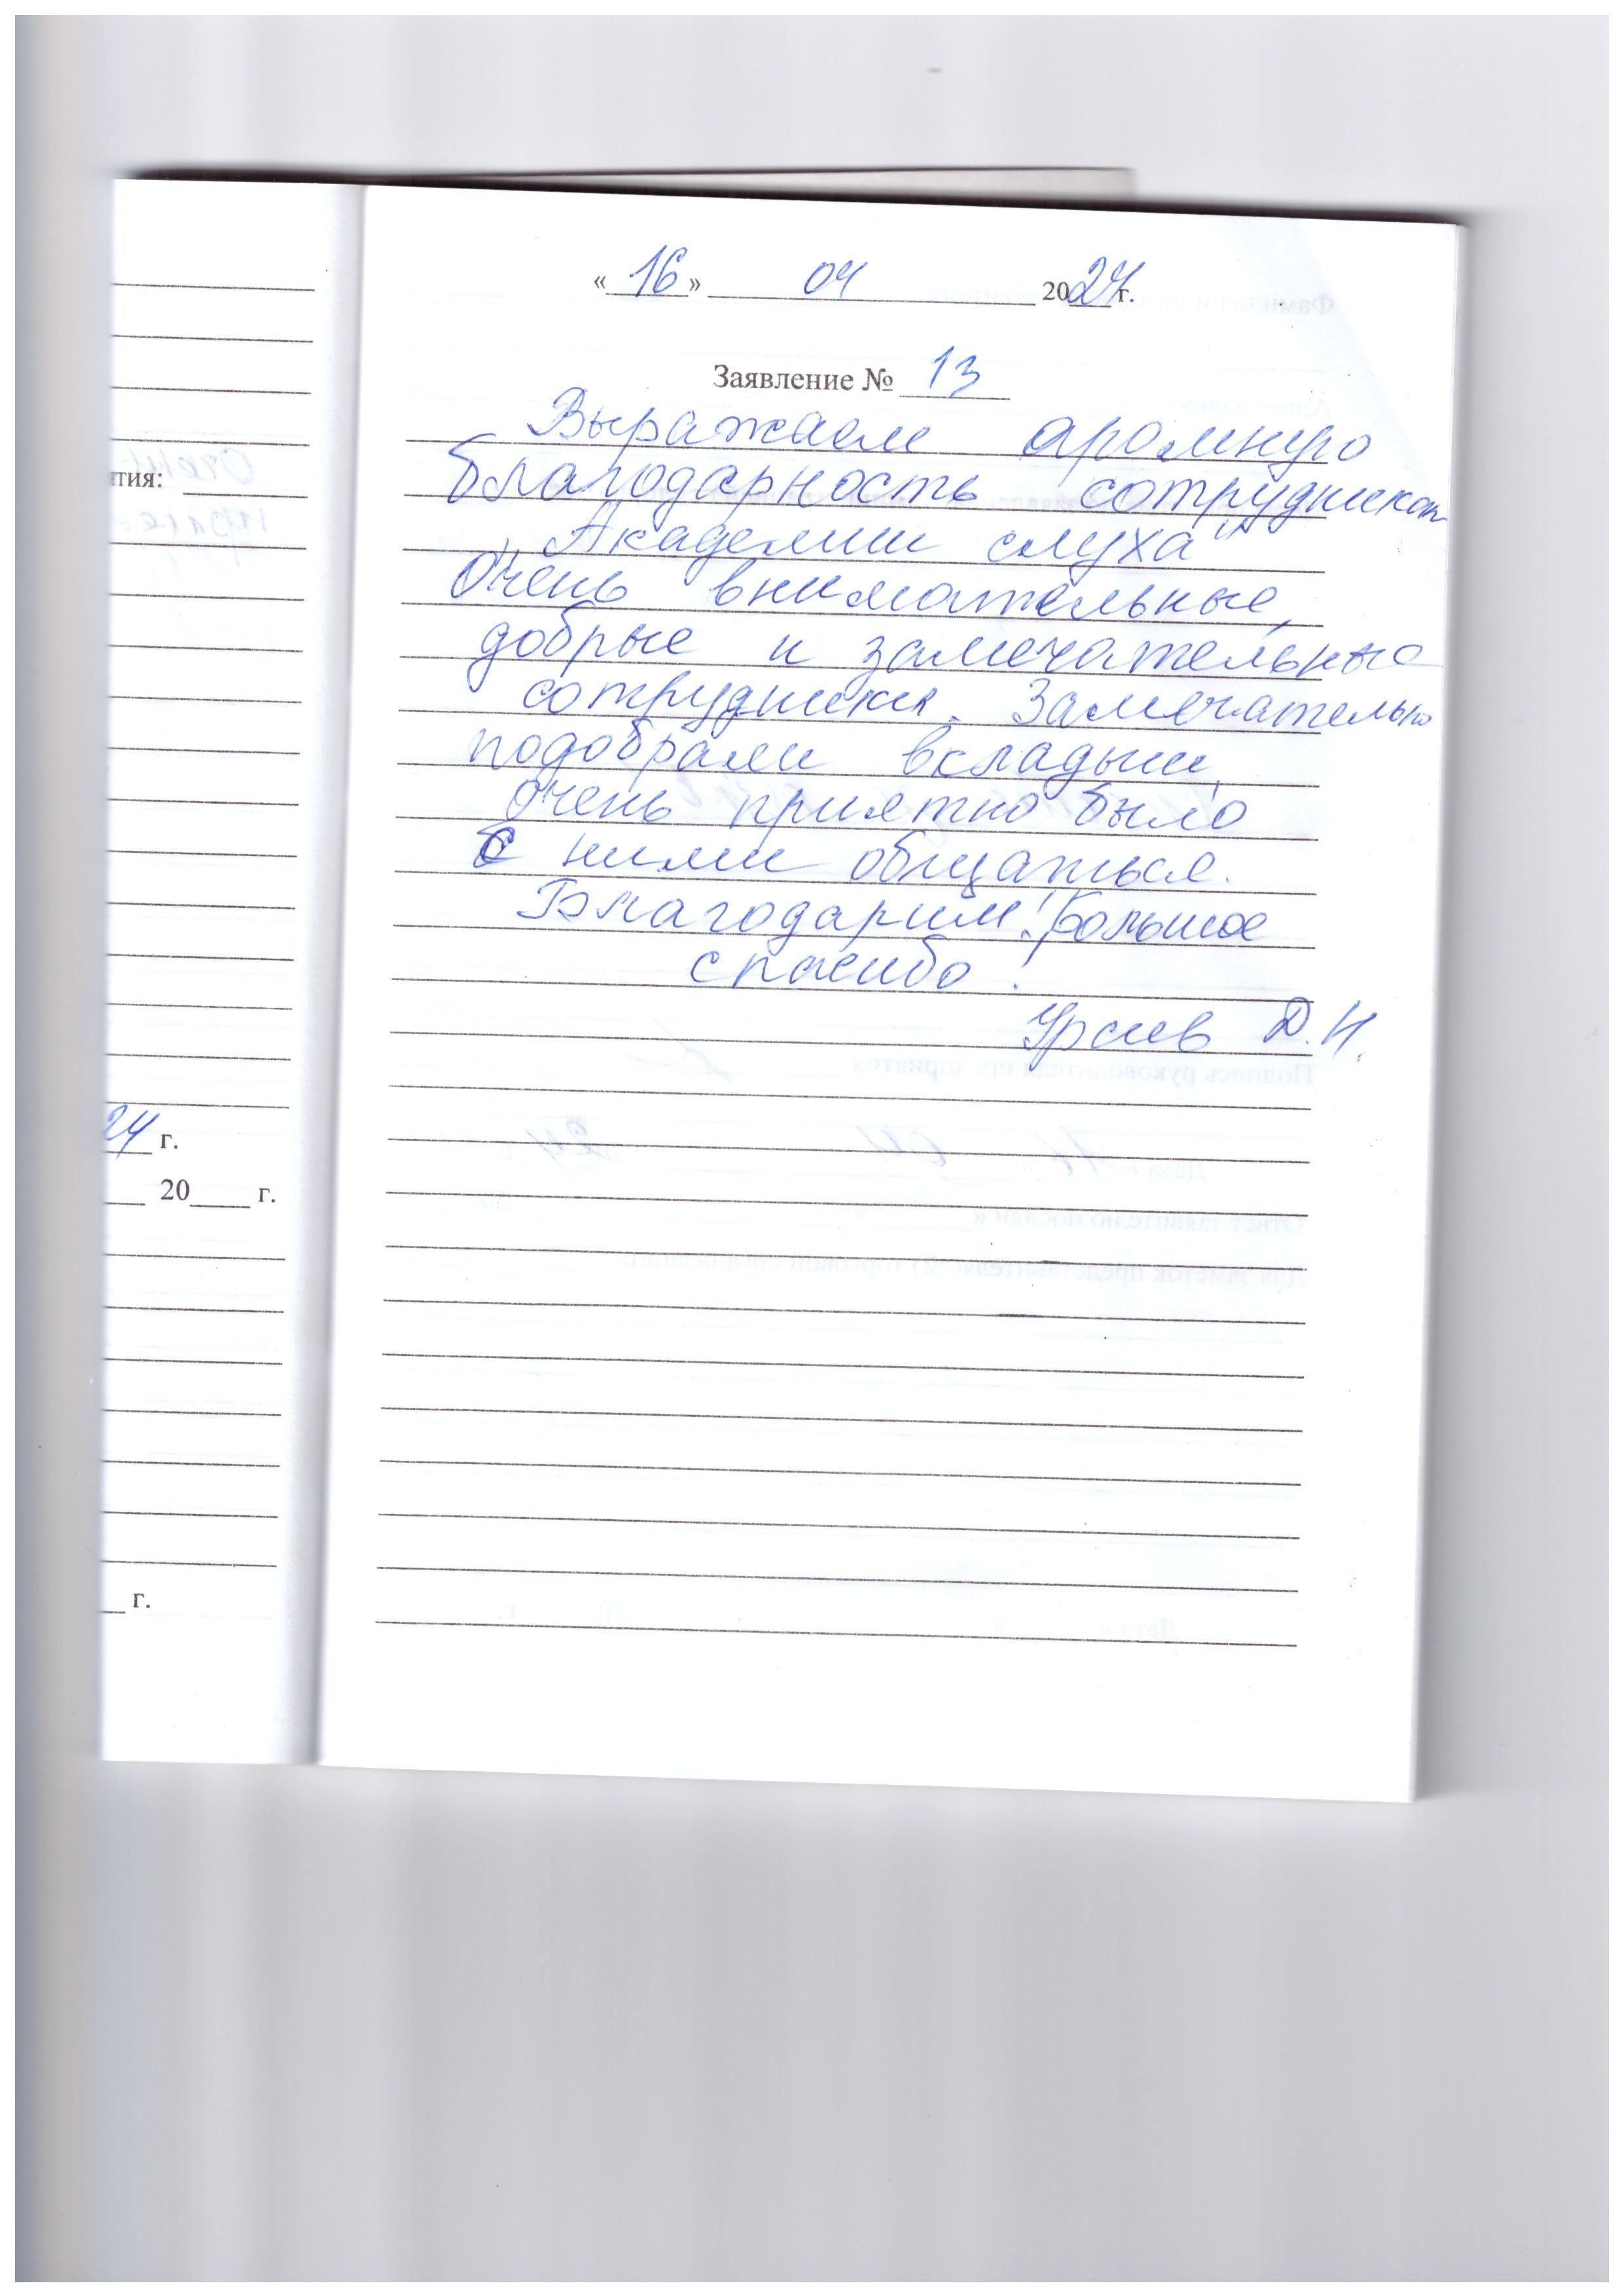 «16» 04 2024 г.
Заявление № 13
Выражаем огромную
благодарность сотрудникам
"Академии слуха"
Очень внимательные,
добрые и замечательные
сотрудники. Замечательно
подобрали вкладыши.
Очень приятно было
с ними общаться.
Благодарим! Большое
спасибо!
Д.Н.
тия:
24 г.
20 г.
г.